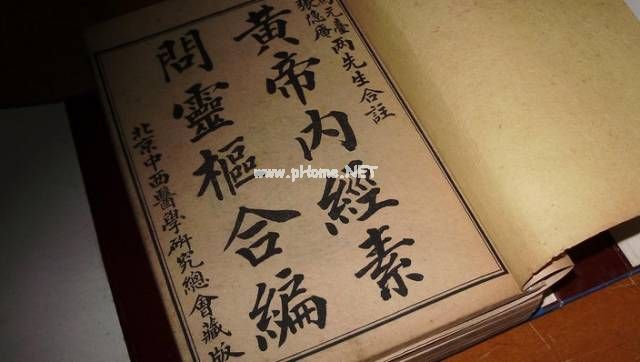 元臺兩先生合註
張隱庵
黃帝內經素
問靈樞合編
北京中西醫學研究總會藏版
www.pHome.NET